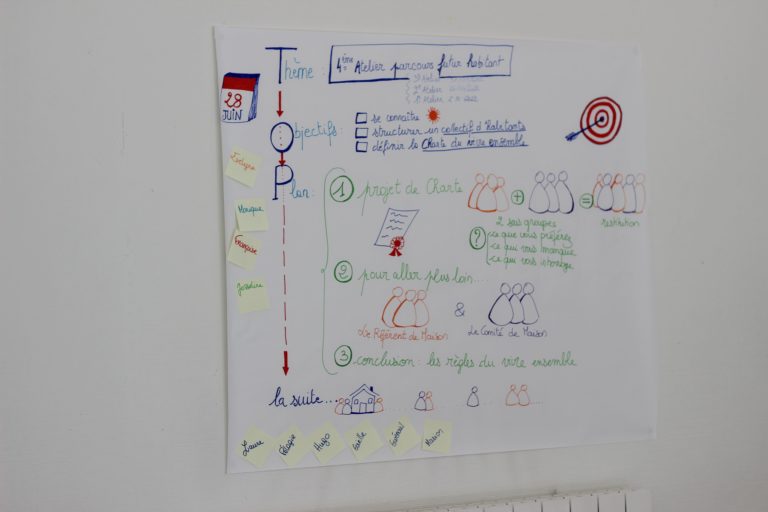 Thème : 4ème Atelier parcours futur habitant
3e Atelier
2e Atelier
1e Atelier
28
JUIN
Objectifs :
se connaître
structurer un collectif d'habitants
définir la Charte du vivre ensemble
Plan :
1 projet de Charte
+ =
2 sous groupes
restitution
? ce que vous préférez
ce qui vous manque
ce qui vous
2 pour aller plus loin....
&
Le Référent de Maison
Le Comité de Maison
3 conclusion : les règles du vivre ensemble
la suite...
Evelyne
Monique
Françoise
Josseline
Laure
Pélagie
Hugo
Manon